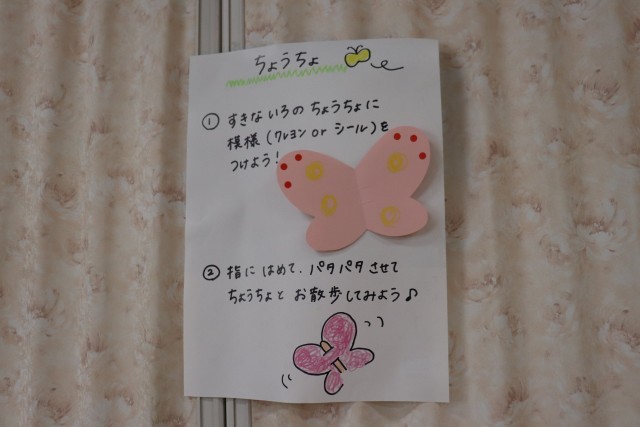 ちょうちょ
① すきないろのちょうちょに
模様(クレヨン or シール)を
つけよう!
② 指にはめて、パタパタさせて
ちょうちょとお散歩してみよう♪